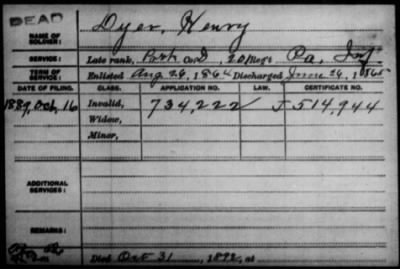 DEAD
Dyer, Henry
NAME OF SOLDIER:
SERVICE: Late rank, Co. D, 201 Reg't Pa. Inf.
TERM OF SERVICE: Enlisted Aug 29, 1864 Discharged June 1865
DATE OF FILING. CLASS. APPLICATION NO. LAW. CERTIFICATE NO.
1889, Oct. 16 Invalid, 734,222 514,944
Widow,
Minor,
ADDITIONAL SERVICES:
REMARKS:
Died Oct 31, 1892, at